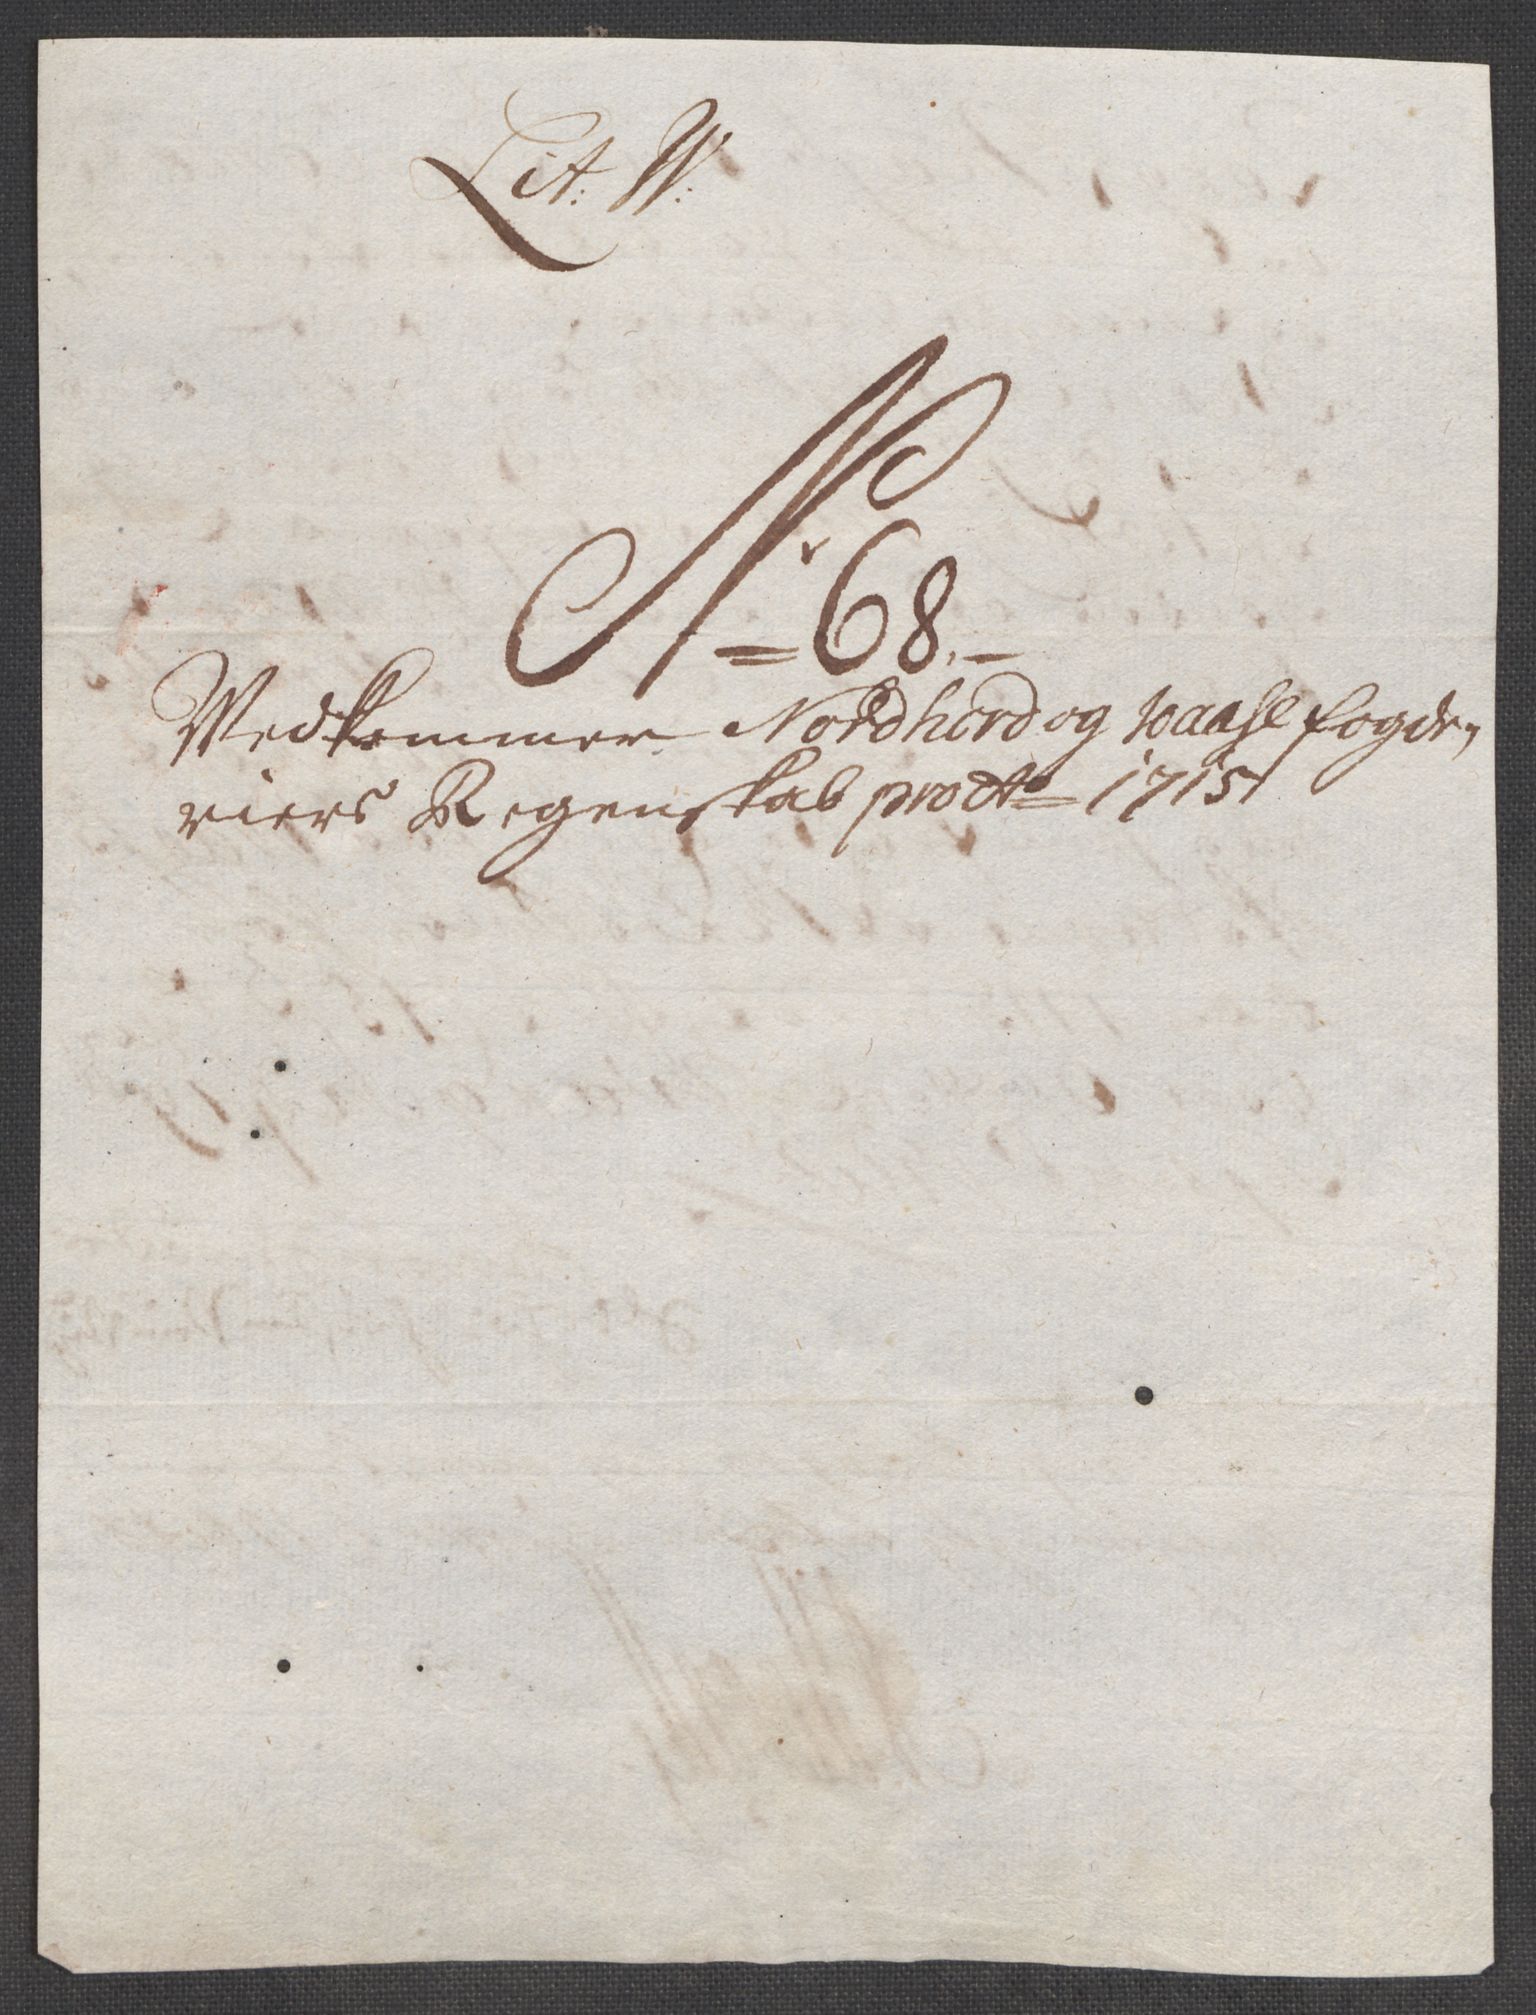 Lit: W:
No 68.
Vedkommer Nordhord og Waase fogde-
riers Regenskab pro Ao 1715